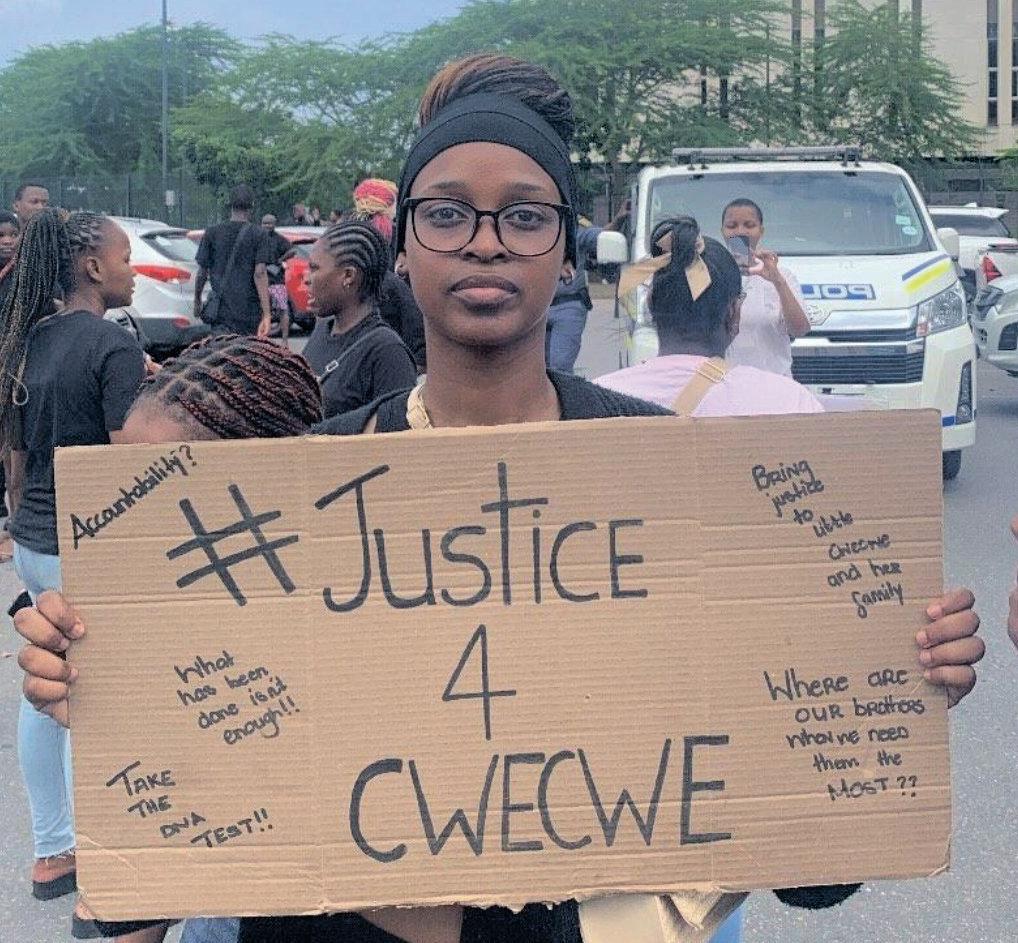 Accountability?
#JUSTICE
4
CWECWE
Bring
justice
to
little
cwecwe
and her
family
What
has been
done isn't
enough!!
TAKE
THE
DNA
TEST!!
Where are
our brothers
we need
them the
MOST??